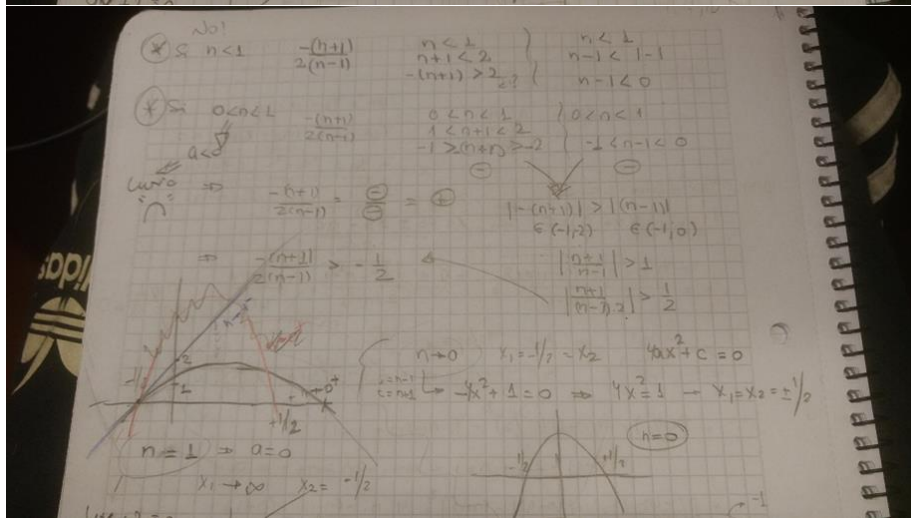 No!
* Si n<1 -(n+1)/2(n-1) n<1 n<1
n+1<2 n-1<1-1
-(n+1)>2 ¿? n-1<0
* Si 0<n<1 -(n+1)/2(n-1) 0<n<1 0<n<1
1<n+1<2
-1>-(n+1)>-2 -1<n-1<0
a<0
⊖ ⊖
⇒ -(n+1)/2(n-1) = ⊖/⊖ = ⊕ |-(n+1)|>|(n-1)|
∈(-1,2) ∈(-1,0)
⇒ -(n+1)/2(n-1) > -1/2 |n+1/n-1|>1
|n+1/(n-1).2|>1/2
adidas
n→0 x₁=-1/2=x₂ 4ax²+c=0
a=n-1
c=n+1 → -4x²+1=0 ⇒ 4x²=1 → x₁=x₂=±1/2
-1/2 2 1 +1/2 n→0⁺
n=1 ⇒ a=0 n=0
-1/2 +1/2
x₁→∞ x₂=-1/2
-1